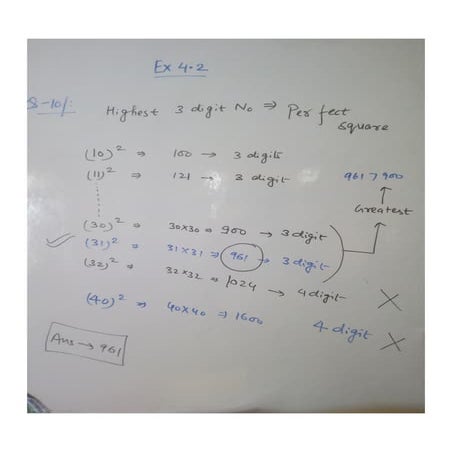 Ex 4.2
S-10/:
Highest 3 digit No ⇒ Perfect
square
(10)² ⇒ 100 → 3 digits
(11)² ⇒ 121 → 3 digit
961 > 900
↑
Greatest
(30)² ⇒ 30×30 ⇒ 900 → 3 digit
(31)² ⇒ 31×31 ⇒ 961 → 3 digit
(32)² ⇒ 32×32 ⇒ 1024 → 4 digit ×
(40)² ⇒ 40×40 ⇒ 1600 4 digit ×
Ans → 961